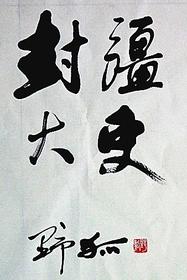 封疆
大吏
野